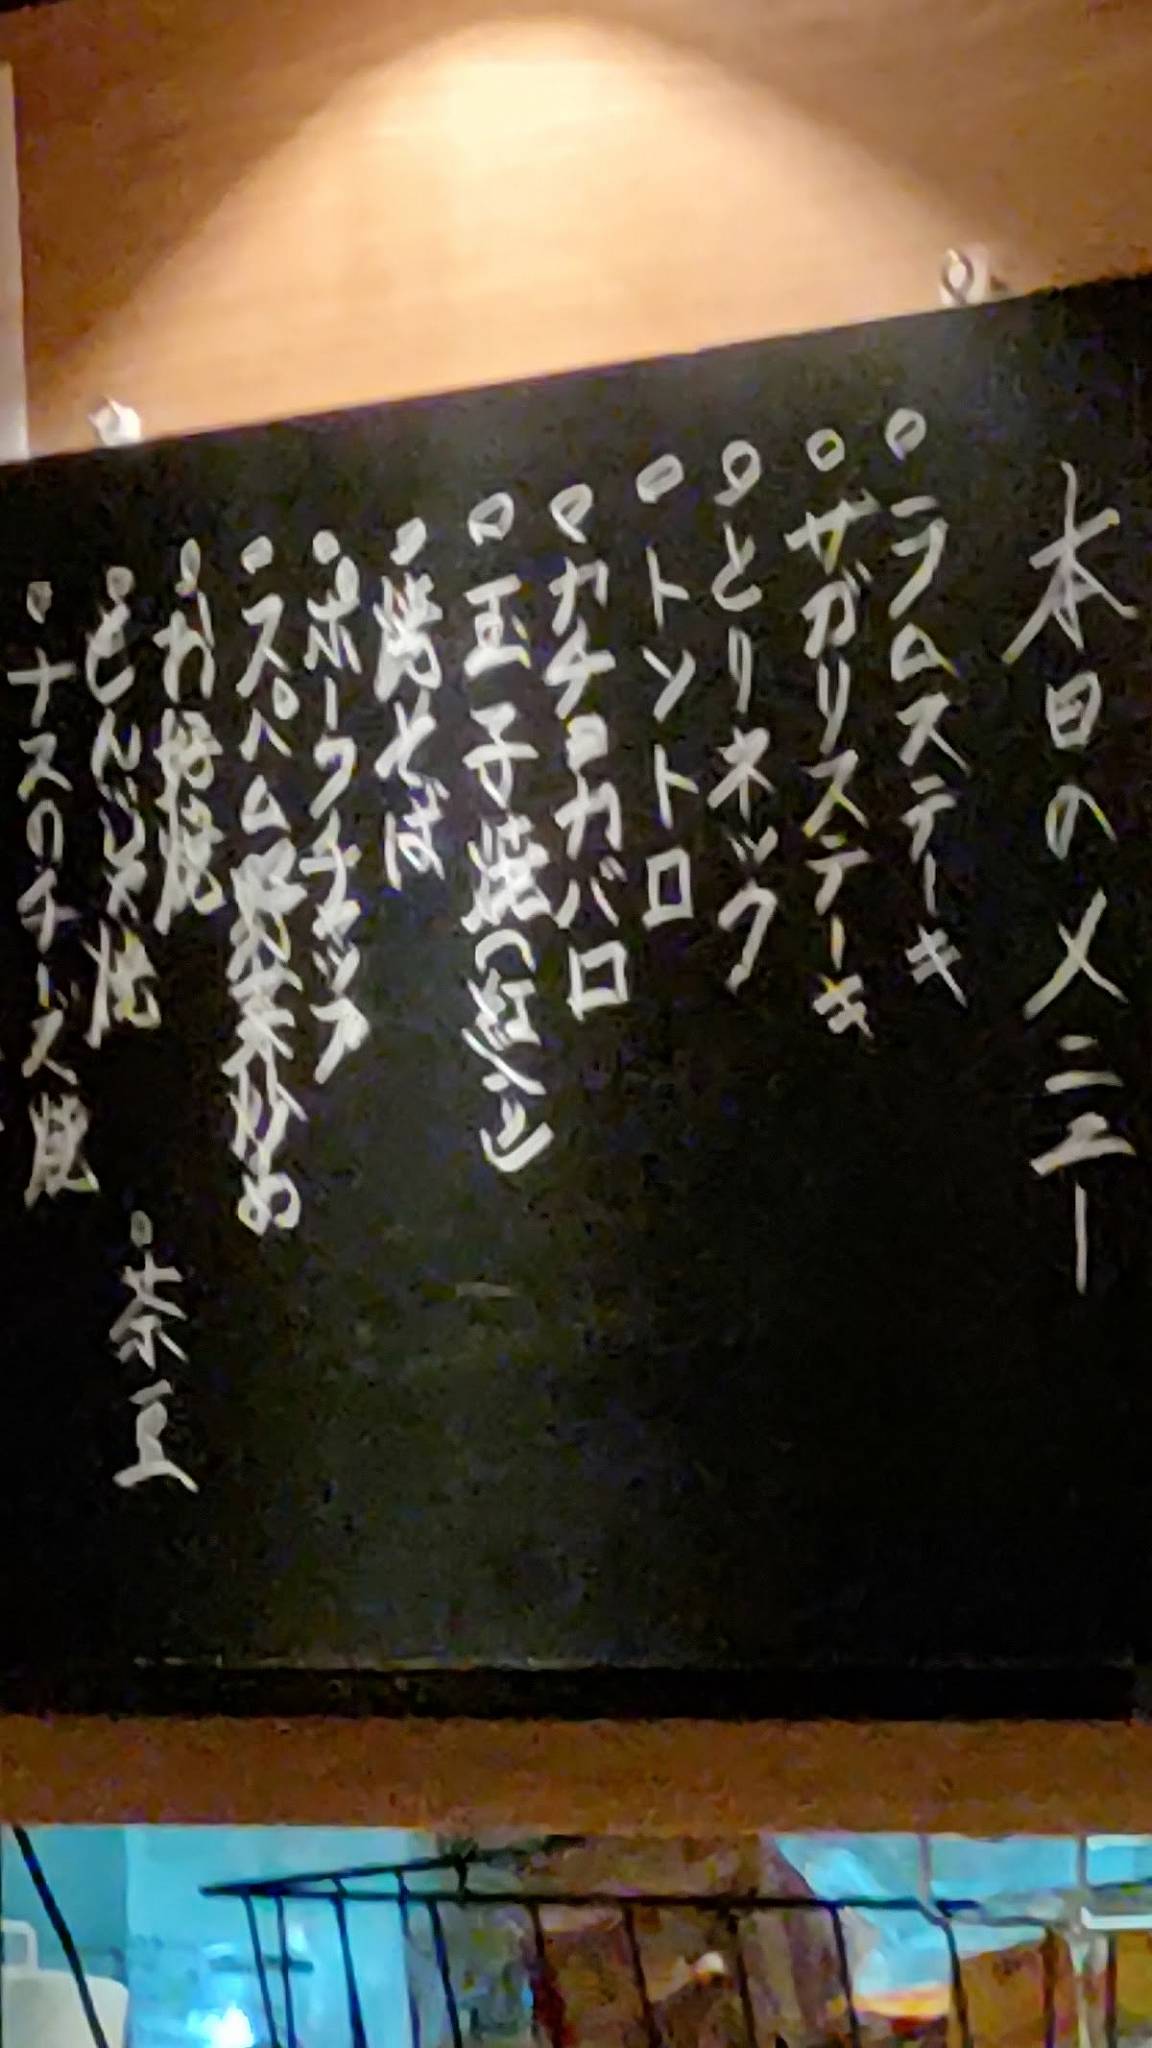 本日のメニュー
○ラムステーキ
○サガリステーキ
○とりネック
○トントロ
○カチョカバロ
○玉子焼(紅入)
○焼そば
○ポークチャップ
○スパム野菜炒め
○お好焼
○とんぺい焼
○茶豆
○ナスのチーズ焼